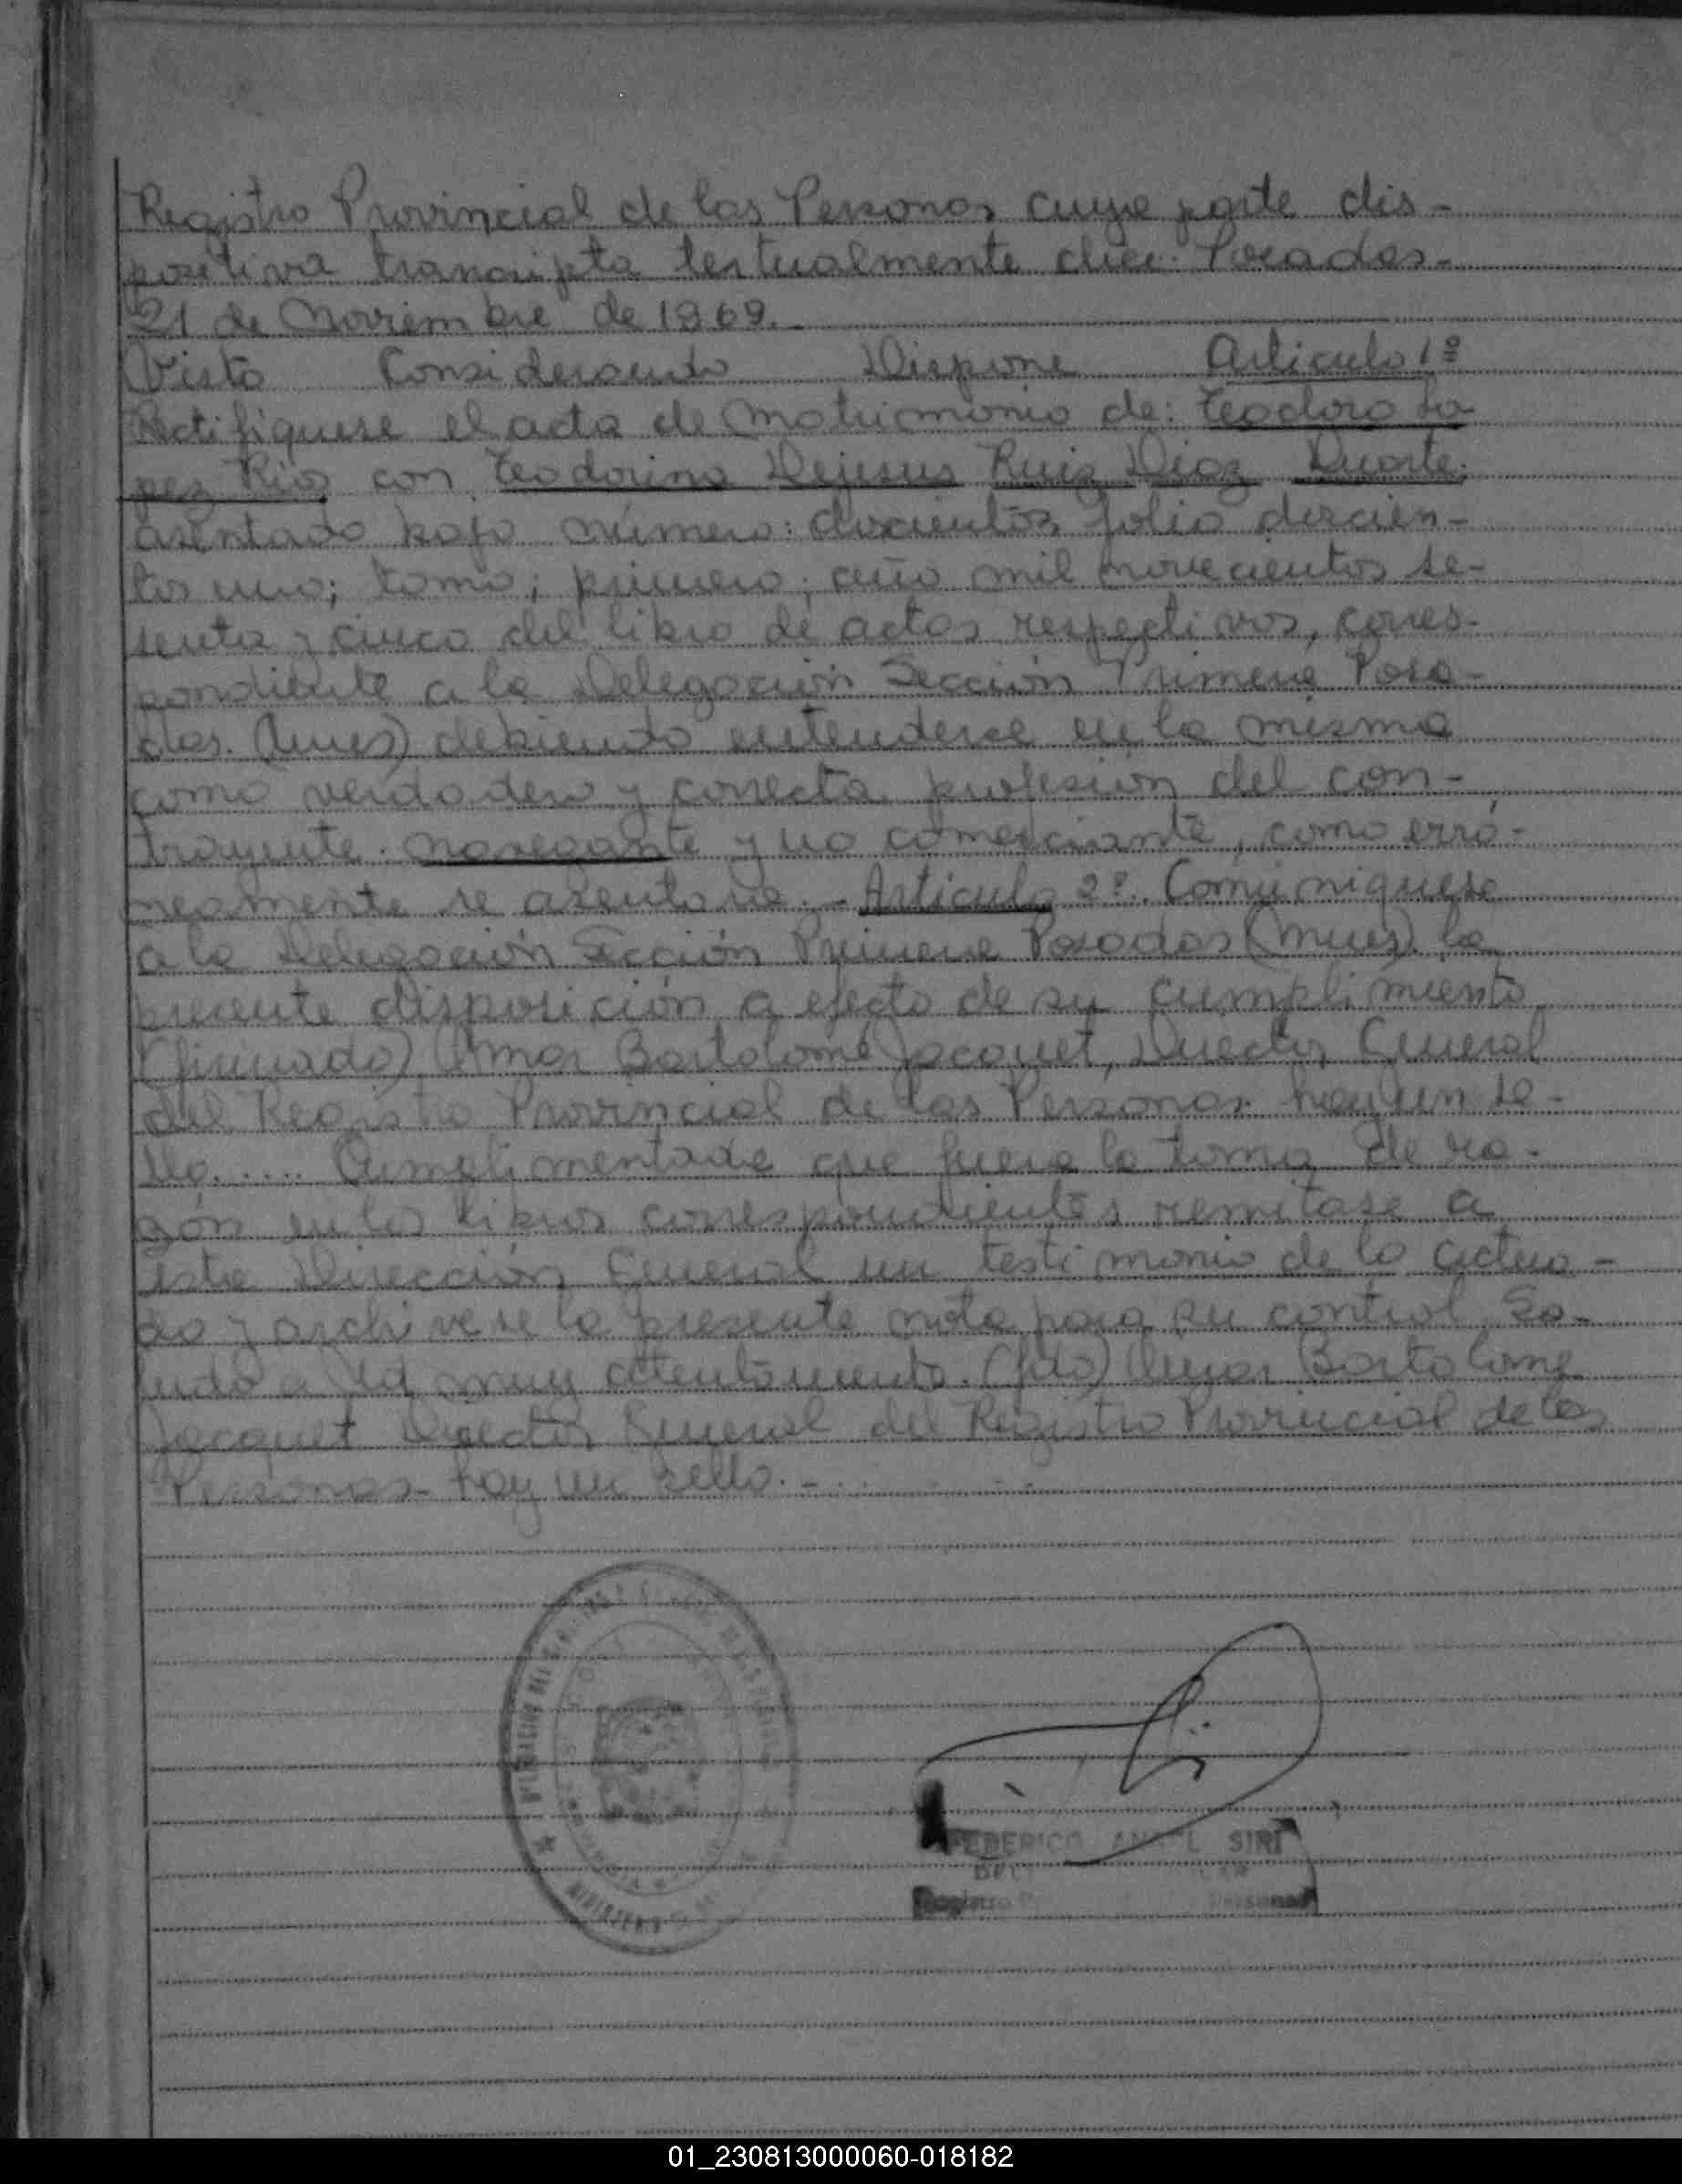 Registro Provincial de las Personas cuya parte dis-
positiva transcripta textualmente dice: Posadas-
21 de Noviembre de 1969.
Visto Considerando Dispone Articulo 1º
Rectifiquese el acta de Matrimonio de: Teodoro Lo-
pez Rios con Teodorina Dejesus Ruiz Diaz Duarte.
asentado bajo número: doscientos folio doscien-
tos uno; tomo; primero; año mil novecientos se-
senta y cinco del libro de actas respectivos, corres-
pondiente a la Delegación Sección Primera Posa-
das. (Mnes) debiendo entenderse en la misma
como verdadero y correcta profesión del con-
trayente. navegante y no comerciante, como erró-
neamente se asentara.- Articulo 2º. Comuniquese
a la Delegación Sección Primera Posadas (Mnes) la
presente disposición a efecto de su cumplimiento
(firmado) Omar Bartolomé Jacquet, Director General
del Registro Provincial de las Personas hay un se-
llo..... Cumplimentada que fuera la toma de ra-
zón en los libros correspondientes remitase a
esta Dirección General un testimonio de lo actua-
do y archivese la presente nota para su control. Sa-
ludo a Ud muy atentamente. (fdo) Omar Bartolomé
Jacquet Director General del Registro Provincial de las
Personas- hay un sello.-
FEDERICO SIRI
Registro Personas
01_230813000060-018182